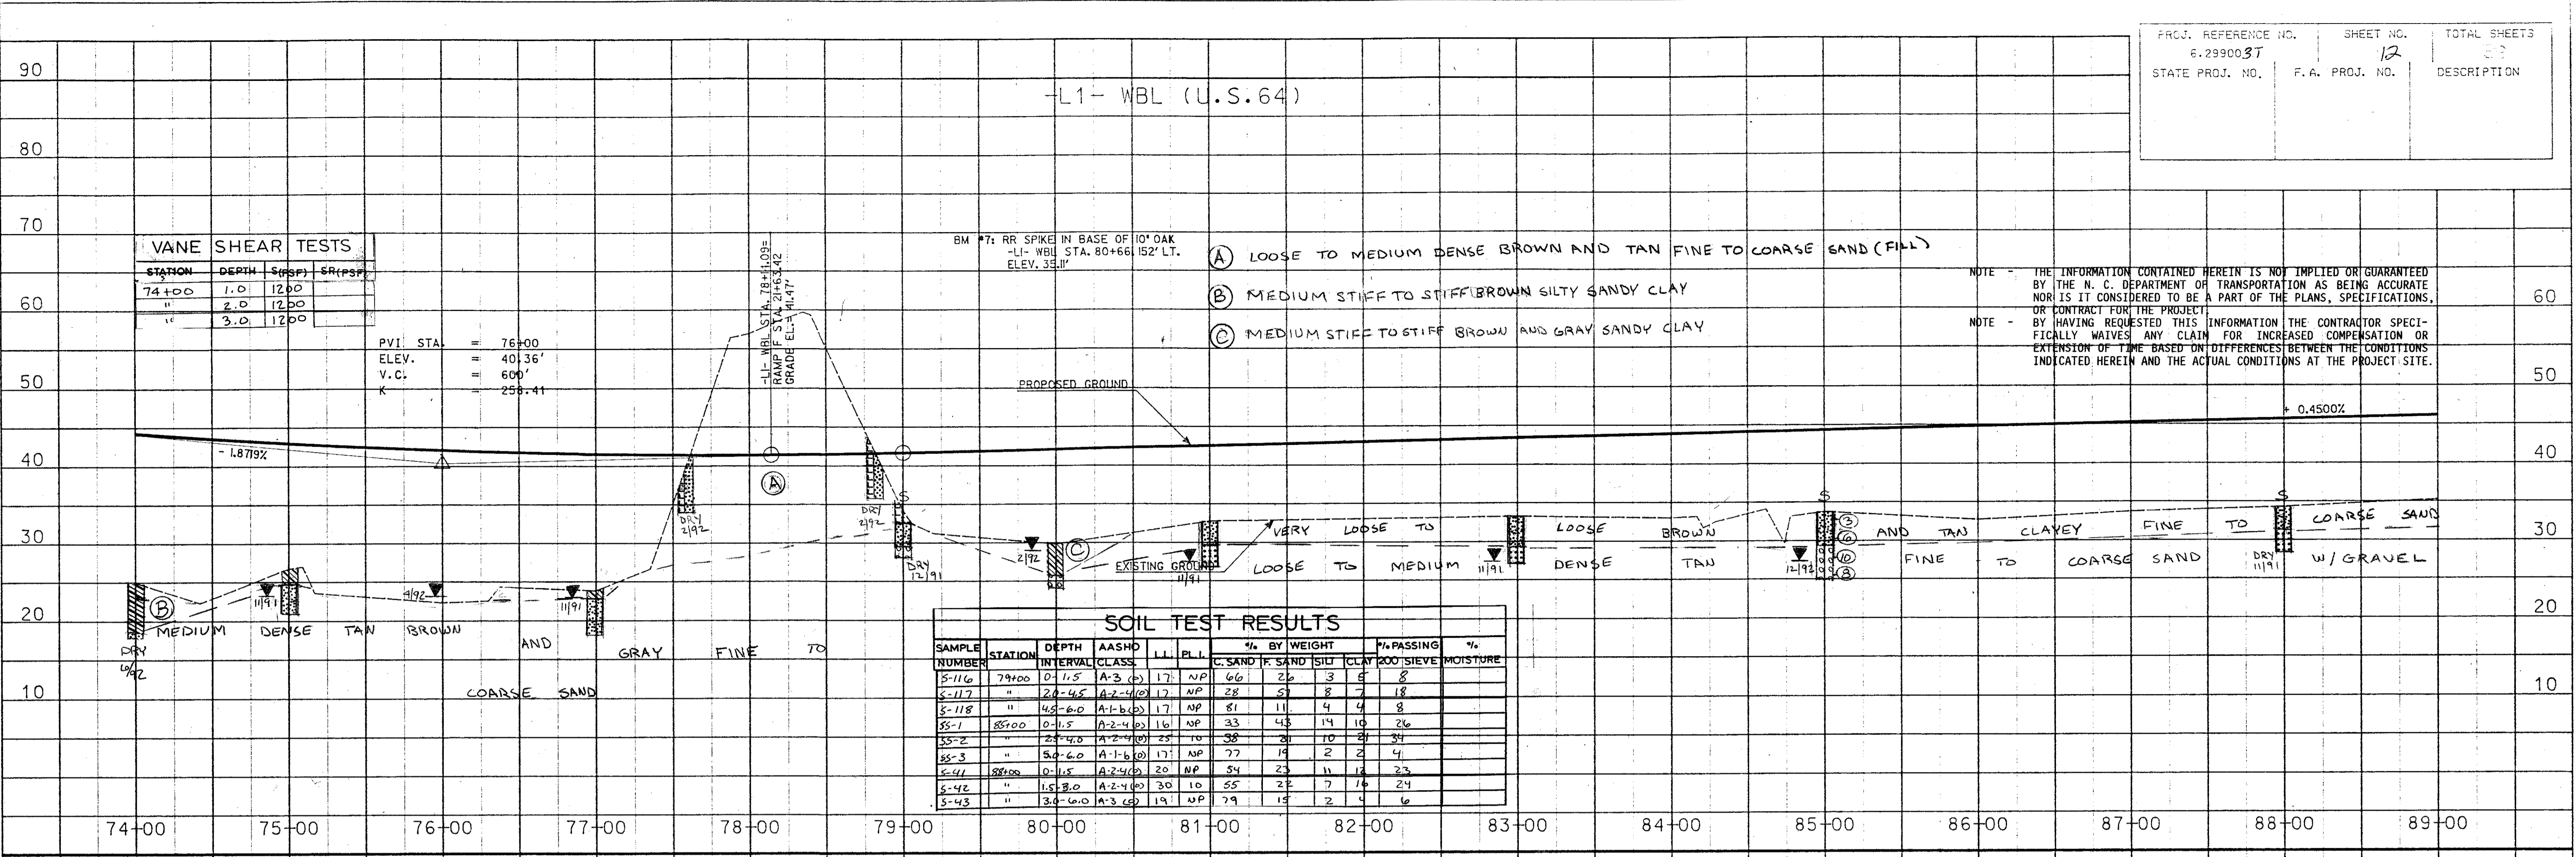 PROJ. REFERENCE NO. SHEET NO. TOTAL SHEETS
6.299003T 12
STATE PROJ. NO. F. A. PROJ. NO. DESCRIPTION
-L1- WBL (U.S.64)
90
80
70
60
50
40
30
20
10
60
50
40
30
20
10
VANE SHEAR TESTS
STATION DEPTH S(PSF) SR(PSF)
74+00 1.0 1200
" 2.0 1200
" 3.0 1200
PVI STA. = 76+00
ELEV. = 40.36'
V.C. = 600'
K = 258.41
-L1- WBL STA. 78+11.09=
RAMP F STA. 21+63.42
GRADE EL.= 41.47'
BM #7: RR SPIKE IN BASE OF 10" OAK
-L1- WBL STA. 80+66, 152' LT.
ELEV. 35.11'
A LOOSE TO MEDIUM DENSE BROWN AND TAN FINE TO COARSE SAND (FILL)
B MEDIUM STIFF TO STIFF BROWN SILTY SANDY CLAY
C MEDIUM STIFF TO STIFF BROWN AND GRAY SANDY CLAY
NOTE - THE INFORMATION CONTAINED HEREIN IS NOT IMPLIED OR GUARANTEED
BY THE N. C. DEPARTMENT OF TRANSPORTATION AS BEING ACCURATE
NOR IS IT CONSIDERED TO BE A PART OF THE PLANS, SPECIFICATIONS,
OR CONTRACT FOR THE PROJECT.
NOTE - BY HAVING REQUESTED THIS INFORMATION THE CONTRACTOR SPECI-
FICALLY WAIVES ANY CLAIM FOR INCREASED COMPENSATION OR
EXTENSION OF TIME BASED ON DIFFERENCES BETWEEN THE CONDITIONS
INDICATED HEREIN AND THE ACTUAL CONDITIONS AT THE PROJECT SITE.
PROPOSED GROUND
+ 0.4500%
- 1.8719%
A
DRY
2/92
DRY
2/92
S
DRY
12/91
2/92
C
EXISTING GROUND
11/91
VERY LOOSE TO LOOSE BROWN AND TAN CLAYEY FINE TO COARSE SAND
LOOSE TO MEDIUM DENSE TAN FINE TO COARSE SAND W/ GRAVEL
11/91
12/92
S
3
6
10
8
S
DRY
11/91
B
DRY
6/92
11/91
4/92
11/91
MEDIUM DENSE TAN BROWN AND GRAY FINE TO
COARSE SAND
SOIL TEST RESULTS
SAMPLE NUMBER STATION DEPTH INTERVAL AASHO CLASS. L.L. PL.I. % BY WEIGHT C. SAND F. SAND SILT CLAY % PASSING 200 SIEVE % MOISTURE
S-116 79+00 0-1.5 A-3 (0) 17 NP 66 26 3 5 8
S-117 " 2.0-4.5 A-2-4(0) 17 NP 28 57 8 7 18
S-118 " 4.5-6.0 A-1-b(0) 17 NP 81 11 4 4 8
SS-1 85+00 0-1.5 A-2-4(0) 16 NP 33 43 14 10 26
SS-2 " 2.5-4.0 A-2-4(0) 25 10 38 31 10 21 34
SS-3 " 5.0-6.0 A-1-b(0) 17 NP 77 19 2 2 4
S-41 88+00 0-1.5 A-2-4(0) 20 NP 54 23 11 12 23
S-42 " 1.5-3.0 A-2-4(0) 30 10 55 22 7 16 24
S-43 " 3.0-6.0 A-3 (0) 19 NP 79 15 2 4 6
74+00 75+00 76+00 77+00 78+00 79+00 80+00 81+00 82+00 83+00 84+00 85+00 86+00 87+00 88+00 89+00